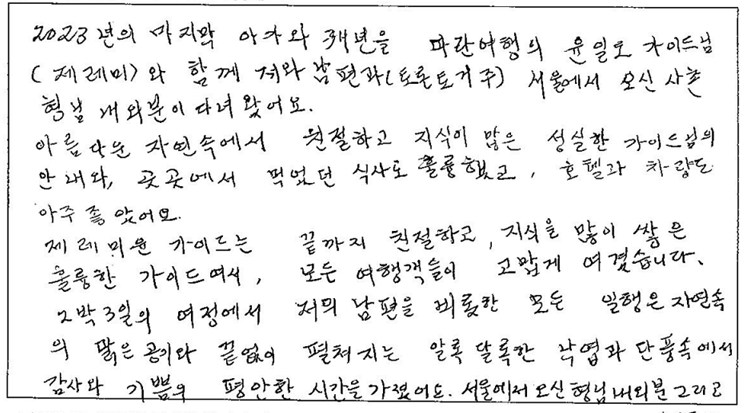 2023년의 마지막 아가와 캐년을 파란여행의 윤일오 가이드님
(제레미)와 함께 저와 남편과(토론토거주) 서울에서 오신 사촌
형님 내외분이 다녀왔어요.
아름다운 자연속에서 친절하고 지식이 많은 성실한 가이드님의
안내와, 곳곳에서 먹었던 식사도 훌륭했고, 호텔과 차량도
아주 좋았어요.
제레미윤 가이드는 끝까지 친절하고, 지식을 많이 쌓은
훌륭한 가이드여서, 모든 여행객들이 고맙게 여겼습니다.
2박3일의 여정에서 저의 남편을 비롯한 모든 일행은 자연속
의 맑은 공기와 끝없이 펼쳐지는 알록달록한 낙엽과 단풍속에서
감사와 기쁨의 평안한 시간을 가졌어요. 서울에서 오신 형님내외분 그리고